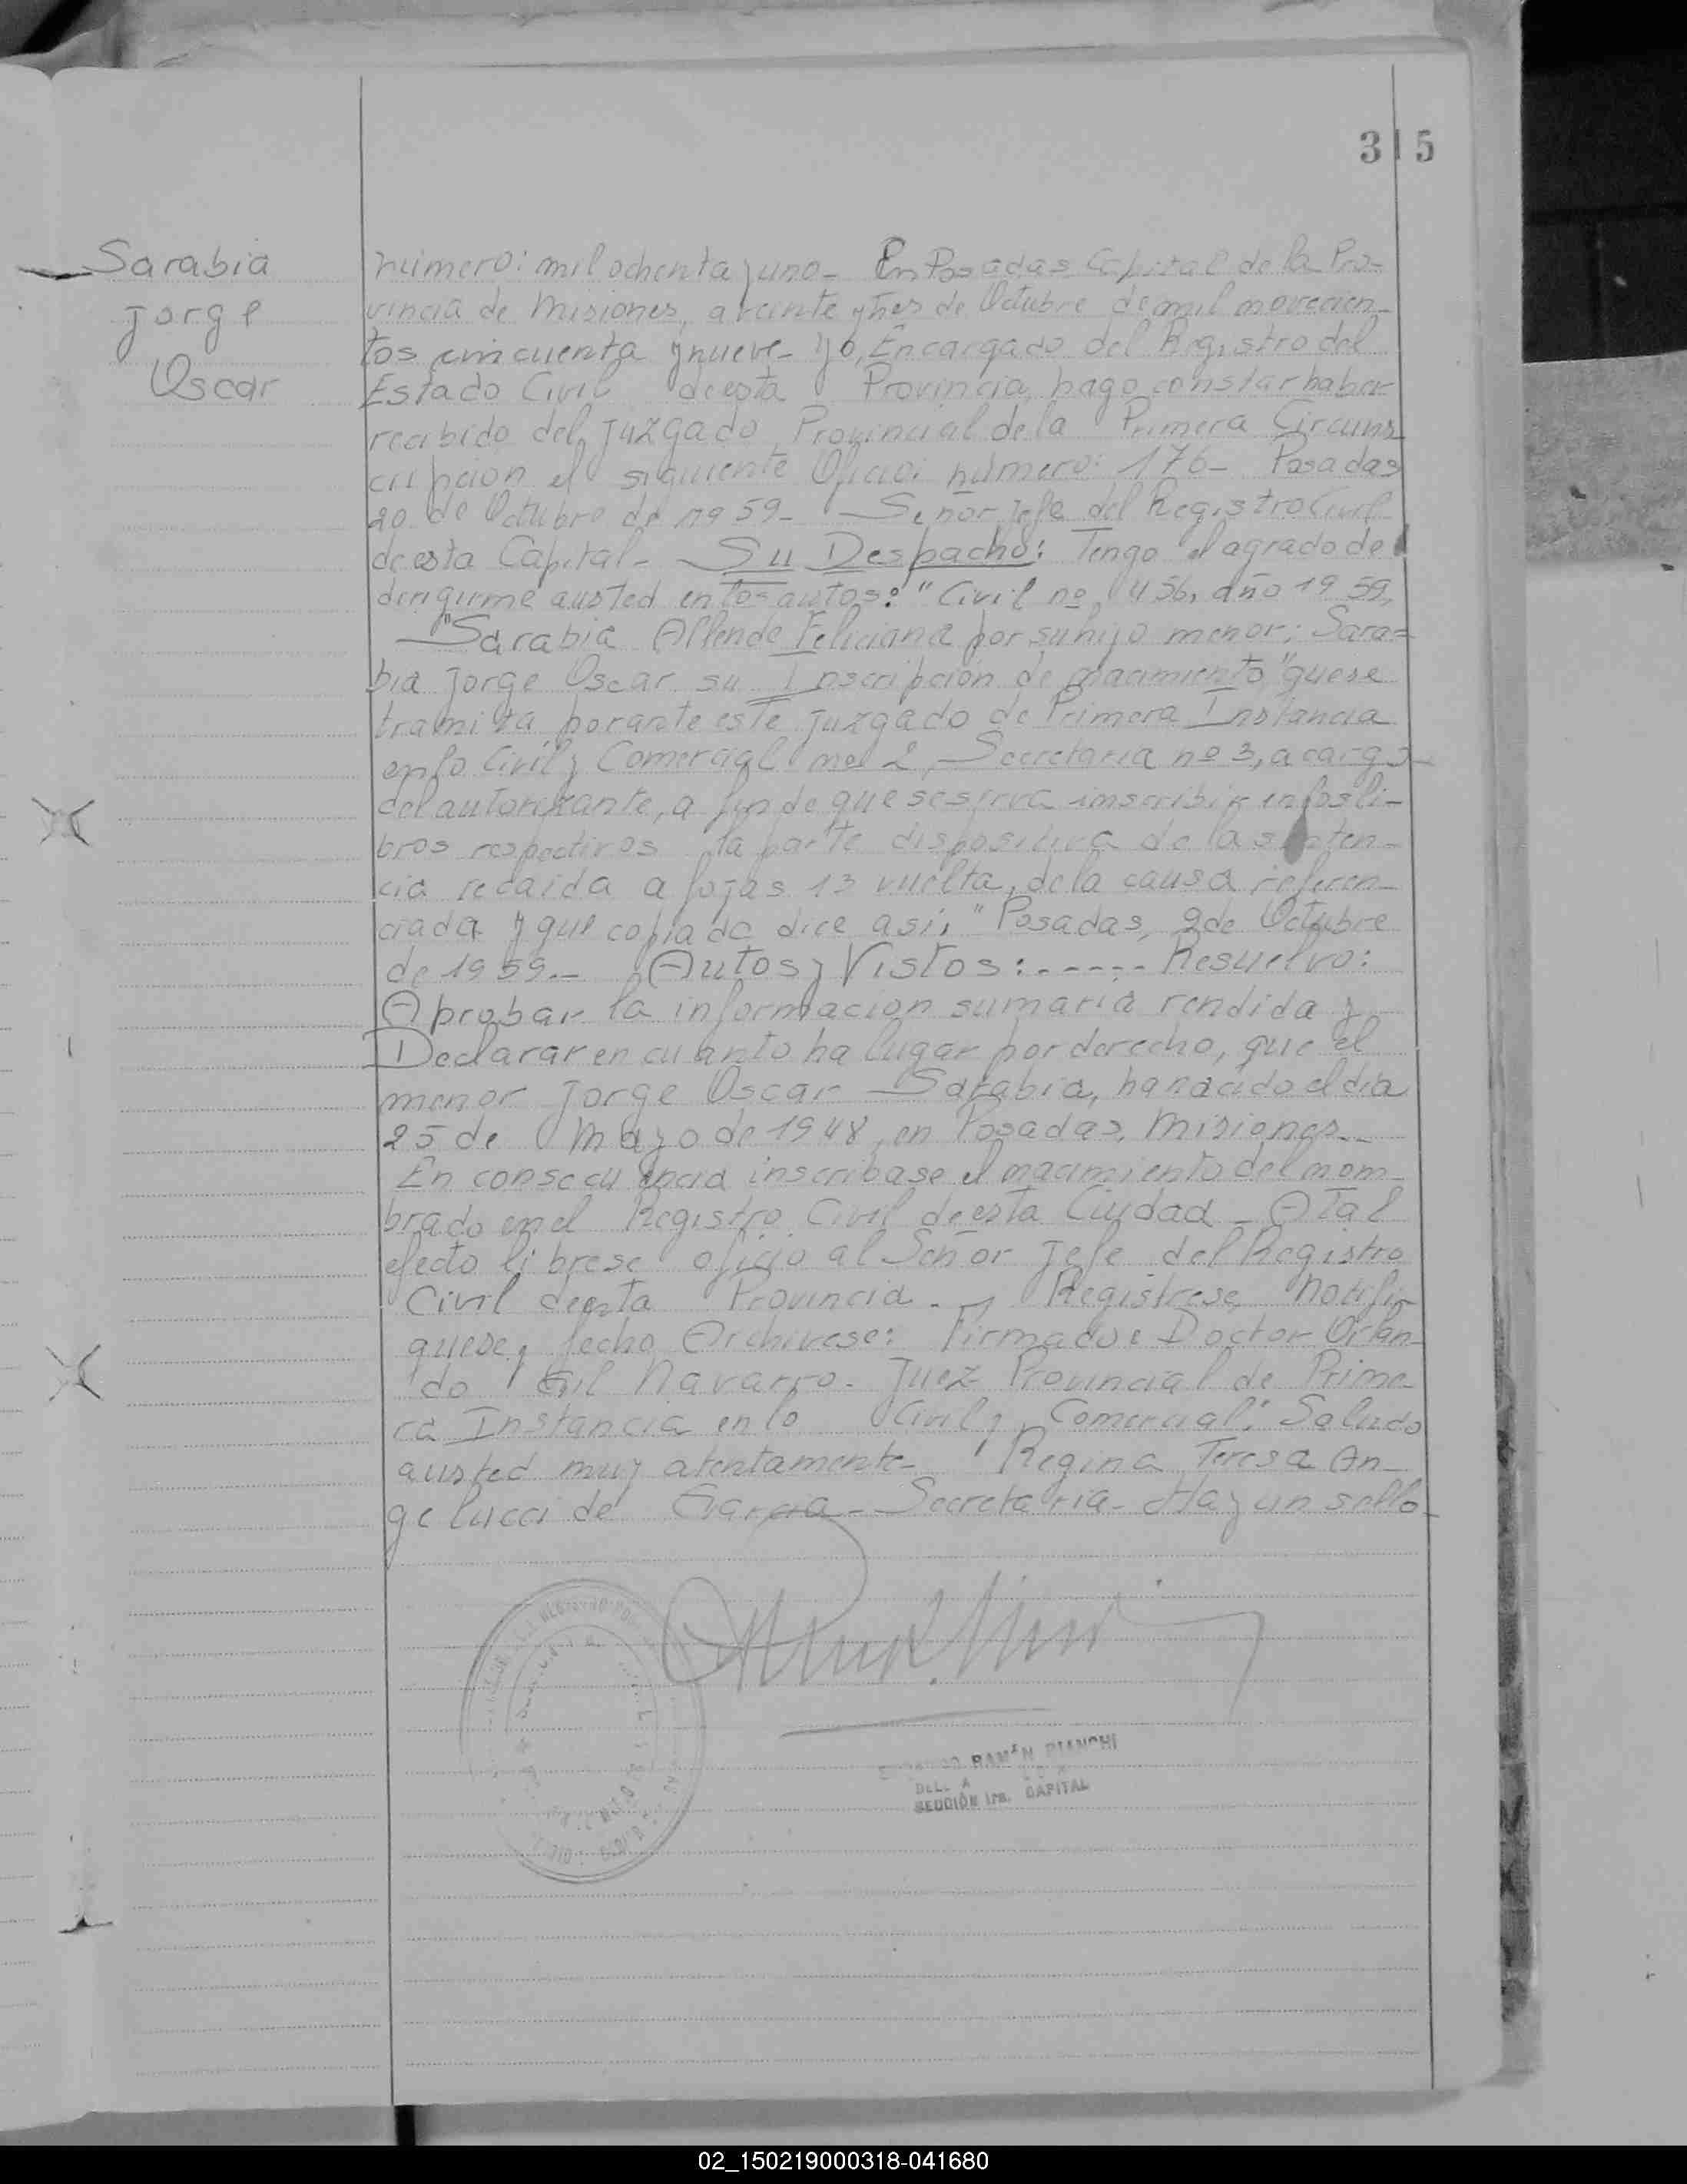 315
Sarabia
Jorge
Oscar
número: mil ochenta y uno- En Posadas Capital de la Pro-
vincia de Misiones, a veinte y tres de Octubre de mil novecien-
tos cincuenta y nueve- Yo, Encargado del Registro del
Estado Civil de esta Provincia, hago constar haber
recibido del Juzgado Provincial de la Primera Circuns
cripcion el siguiente Oficio: número: 176- Posadas
20 de Octubre de 1959- Señor Jefe del Registro Civil
de esta Capital- Su Despacho: Tengo el agrado de
dirigirme a usted en los autos: "Civil nº 456, año 1959,
"Sarabia Allende Feliciana por su hijo menor: Sara=
bia Jorge Oscar su Inscripcion de nacimiento" que se
tramita por ante este Juzgado de Primera Instancia
en lo Civil y Comercial nº 2, Secretaria nº 3, a cargo
del autorizante, a fin de que se sirva inscribir en los li-
bros respectivos la parte dispositiva de la senten-
cia recaida a fojas 13 vuelta, de la causa referen-
ciada y que copiada dice asi, "Posadas, 9 de Octubre
de 1959.- Autos y Vistos:------ Resuelvo:
Aprobar la informacion sumaria rendida y
Declarar en cuanto ha lugar por derecho, que el
menor Jorge Oscar Sarabia, ha nacido el dia
25 de Mayo de 1948, en Posadas, Misiones.-
En consecuencia inscribase el nacimiento del nom-
brado en el Registro Civil de esta Ciudad - A tal
efecto librese oficio al Señor Jefe del Registro
Civil de esta Provincia.- Registrese, notifi-
quese, fecho Archivese: Firmado: Doctor Orlan-
do Gil Navarro- Juez Provincial de Prime-
ra Instancia en lo Civil y Comercial: Saludo
a usted muy atentamente- Regina Teresa An-
gelucci de Garcia- Secretaria- Hay un sello-
RAMÓN BIANCHI
SECCIÓN 1ra. CAPITAL
02_150219000318-041680